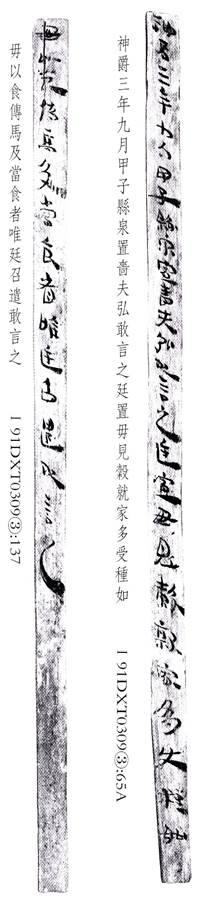 神爵三年九月甲子縣泉置嗇夫弘敢言之廷置毋見穀就家多受種如
I 91DXT0309③:65A
毋以食傳馬及當食者唯廷召遣敢言之
I 91DXT0309③:137